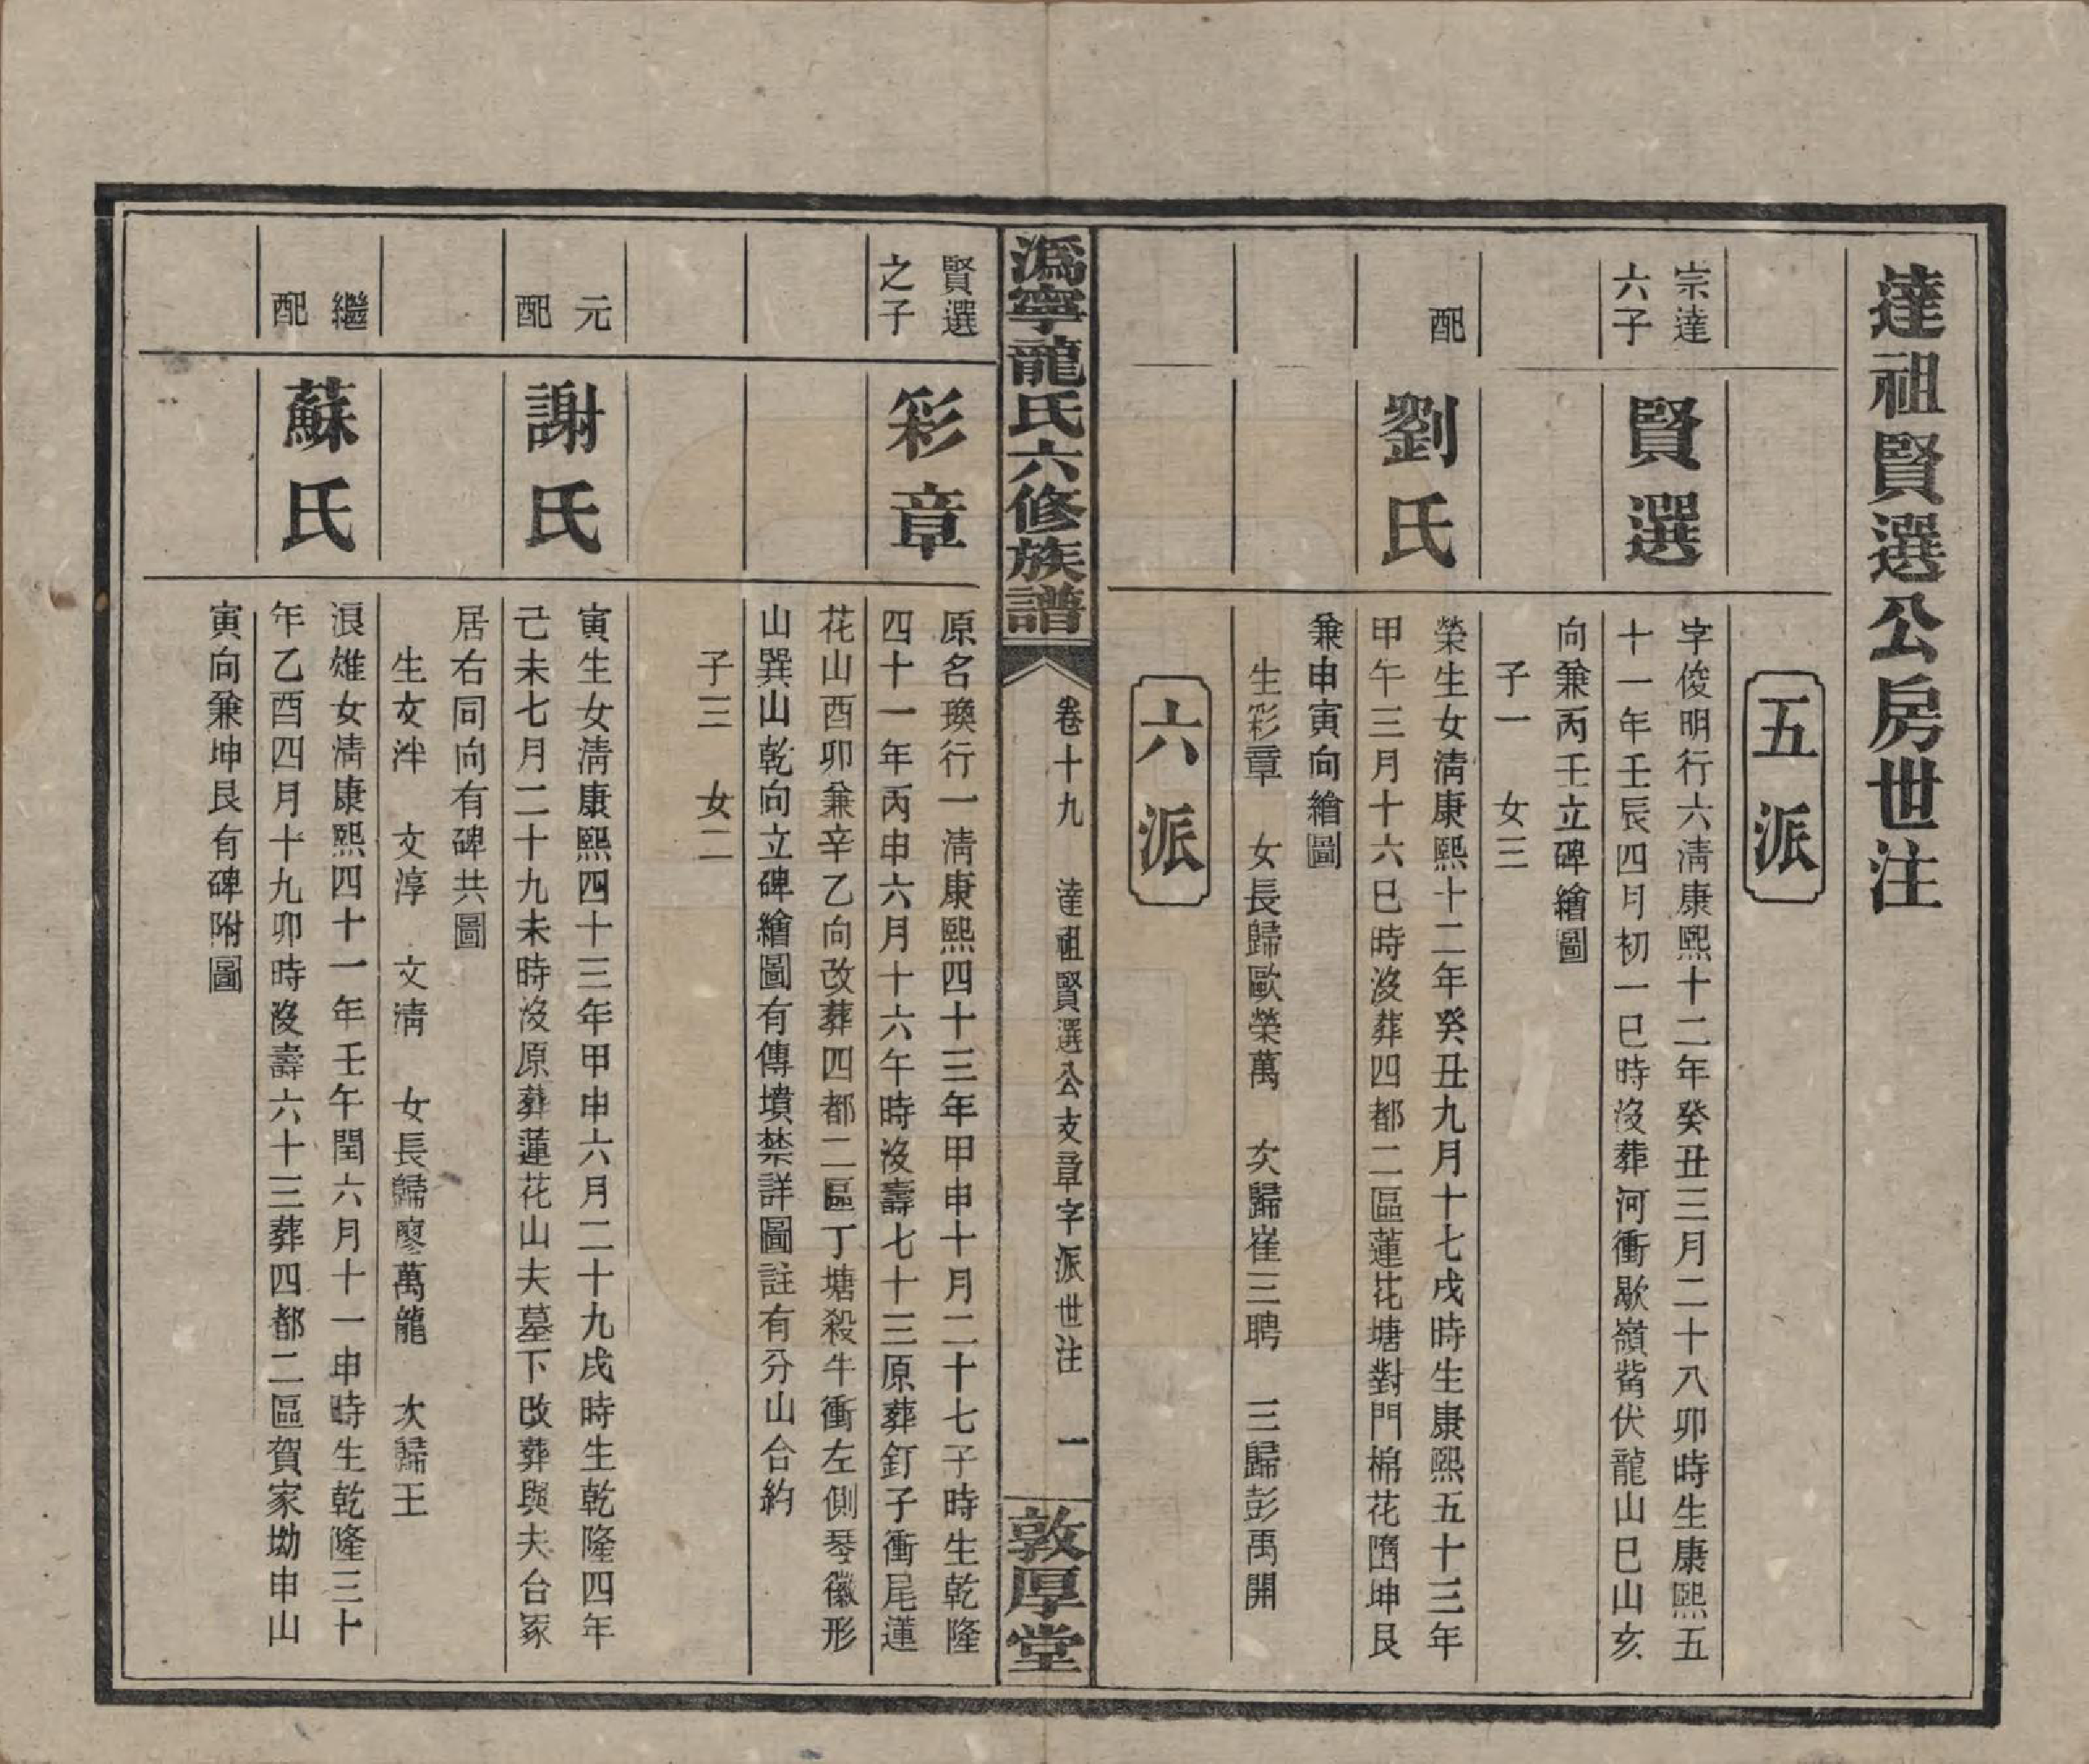 達祖賢選公房世注
五派
宗達
六子
賢選
字俊明行六淸康熙十二年癸丑三月二十八卯時生康熙五
十一年壬辰四月初一巳時沒葬河衝歇嶺觜伏龍山巳山亥
向兼丙壬立碑繪圖
子一　女三
配
劉氏
榮生女淸康熙十二年癸丑九月十七戌時生康熙五十三年
甲午三月十六巳時沒葬四都二區蓮花塘對門棉花嵧坤艮
兼申寅向繪圖
生彩章　女長歸歐榮萬　次歸崔三聘　三歸彭禹開
六派
溈寧龍氏六修族譜
卷十九　達祖賢選公支章字派世注　一
敦厚堂
賢選
之子
彩章
原名瓊行一淸康熙四十三年甲申十月二十七子時生乾隆
四十一年丙申六月十六午時沒壽七十三原葬釘子衝尾蓮
花山酉卯兼辛乙向改葬四都二區丁塘殺牛衝左側琴徽形
山巽山乾向立碑繪圖有傳墳禁詳圖註有分山合約
子三　女二
元
配
謝氏
寅生女淸康熙四十三年甲申六月二十九戌時生乾隆四年
己未七月二十九未時沒原葬蓮花山夫墓下改葬與夫合冢
居右同向有碑共圖
生文泮　文淳　文淸　女長歸廖萬龍　次歸王
繼
配
蘇氏
浪雉女淸康熙四十一年壬午閏六月十一申時生乾隆三十
年乙酉四月十九卯時沒壽六十三葬四都二區賀家坳申山
寅向兼坤艮有碑附圖